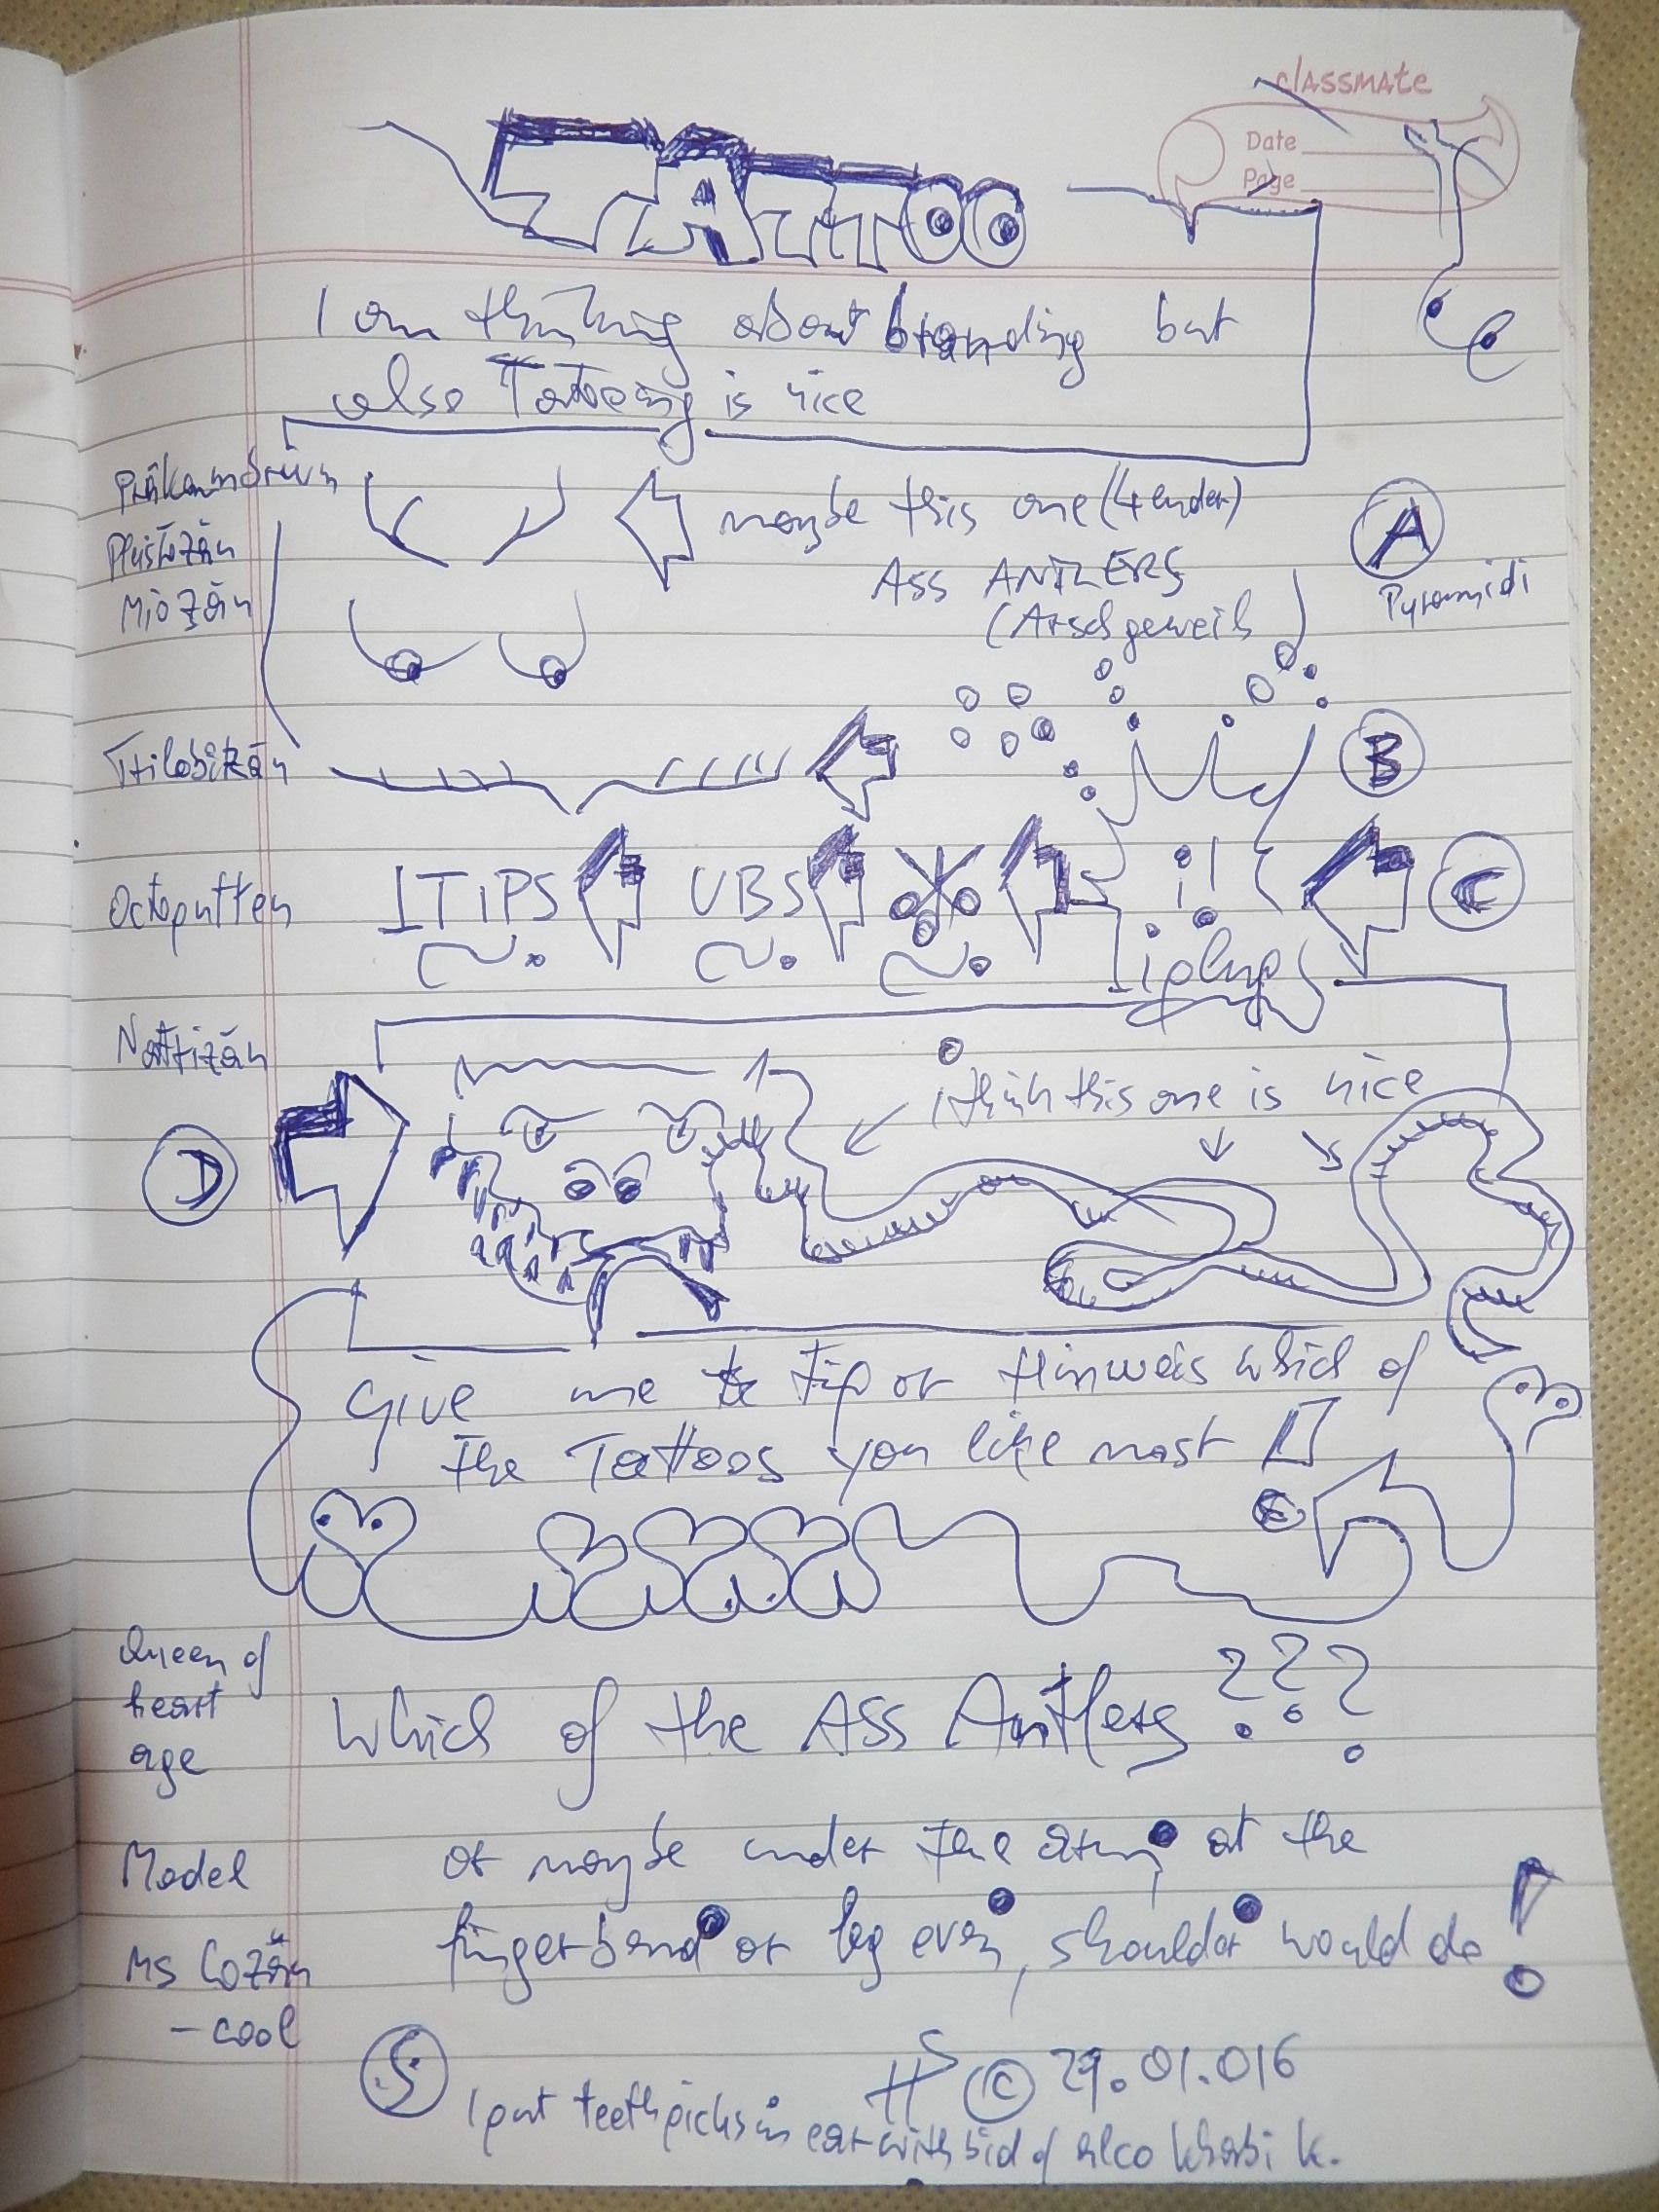 classmate
Date
Page
TATTOO
I am thinking about branding but
also Tattoeing is nice
Präkambrium
Pleistozän
Miozän
maybe this one (4 ender)
A
ASS ANTLERS
Pyramidi
(Arschgeweih
Trilobitzän
B
Octoputten
ITIPS
UBS
C
Nattrizän
I think this one is nice
D
Give me a Tip or Hinweis which of
the Tattoos you like most
E
Queen of
heart
age
Which of the Ass Antlers ???
Model
or maybe under the arm, at the
finger bend or leg even, shoulder would do!
Ms Cozän
- cool
HS © 29.01.016
I put teethpicks in ear with bid of alco